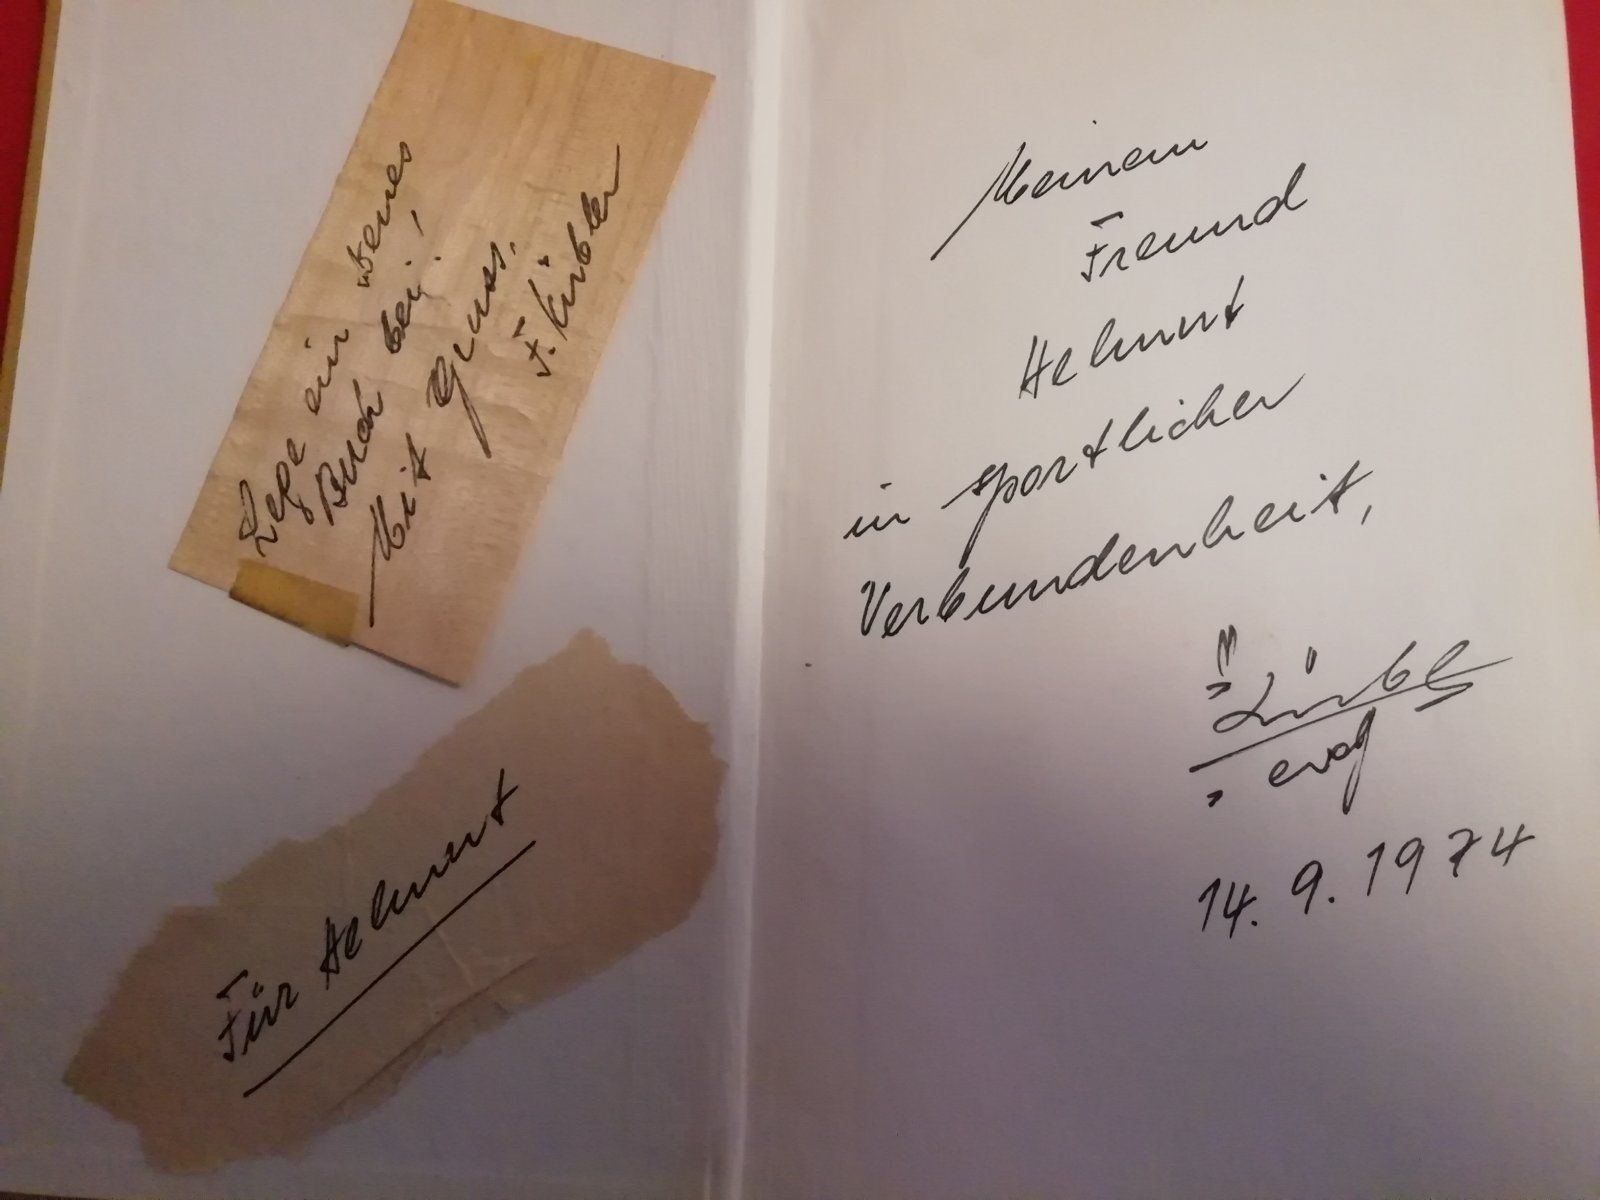 Lege ein
Buch bei!
Mit Gruss,
F. Kübler
Für Helmut
Meinem
Freund
Helmut
in sportlicher
Verbundenheit,
14. 9. 1974